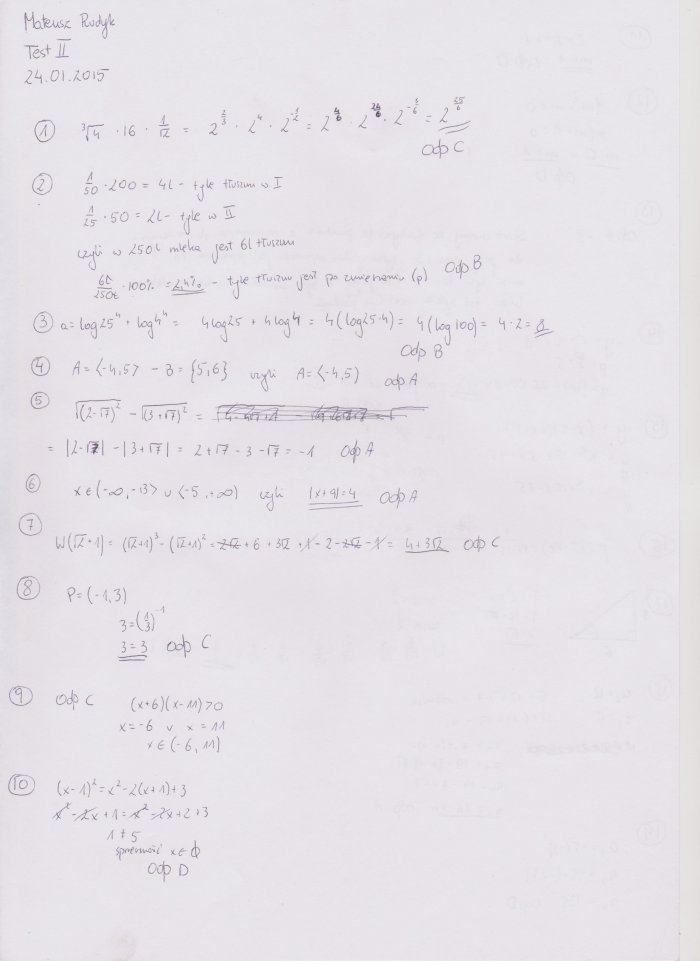 Mateusz Rudyk
Test II
24.01.2015
① ∛4 · 16 · 1/√2 = 2^(2/3) · 2^4 · 2^(-1/2) = 2^(4/6) · 2^(24/6) · 2^(-3/6) = 2^(25/6)
Odp C
② 1/50 · 200 = 4l - tyle tłuszczu w I
1/25 · 50 = 2l - tyle w II
czyli w 250l mleka jest 6l tłuszczu
6l/250l · 100% = 2,4% - tyle tłuszczu jest po zmieszaniu (p) Odp B
③ a = log25^4 + log4^4 = 4log25 + 4log4 = 4(log25·4) = 4(log100) = 4·2 = 8
Odp B
④ A = ⟨-4,5⟩ - B = {5,6} czyli A = ⟨-4,5) odp A
⑤ √(2-√7)² - √(3+√7)² =
= |2-√7| - |3+√7| = 2+√7 - 3 - √7 = -1 Odp A
⑥ x∈(-∞,-13⟩ ∪ ⟨-5,+∞) czyli |x+9|=4 Odp A
⑦
W(√2+1) = (√2+1)³ - (√2+1)² = 2√2 + 6 + 3√2 + 1 - 2 - 2√2 - 1 = 4+3√2 Odp C
⑧ P = (-1,3)
3 = (1/3)^-1
3 = 3 Odp C
⑨ Odp C (x+6)(x-11)>0
x=-6 v x=11
x∈(-6,11)
⑩ (x-1)² = x² - 2(x+1)+3
x² - 2x + 1 = x² - 2x + 2 + 3
1 ≠ 5
sprzeczność x∈Φ
Odp D